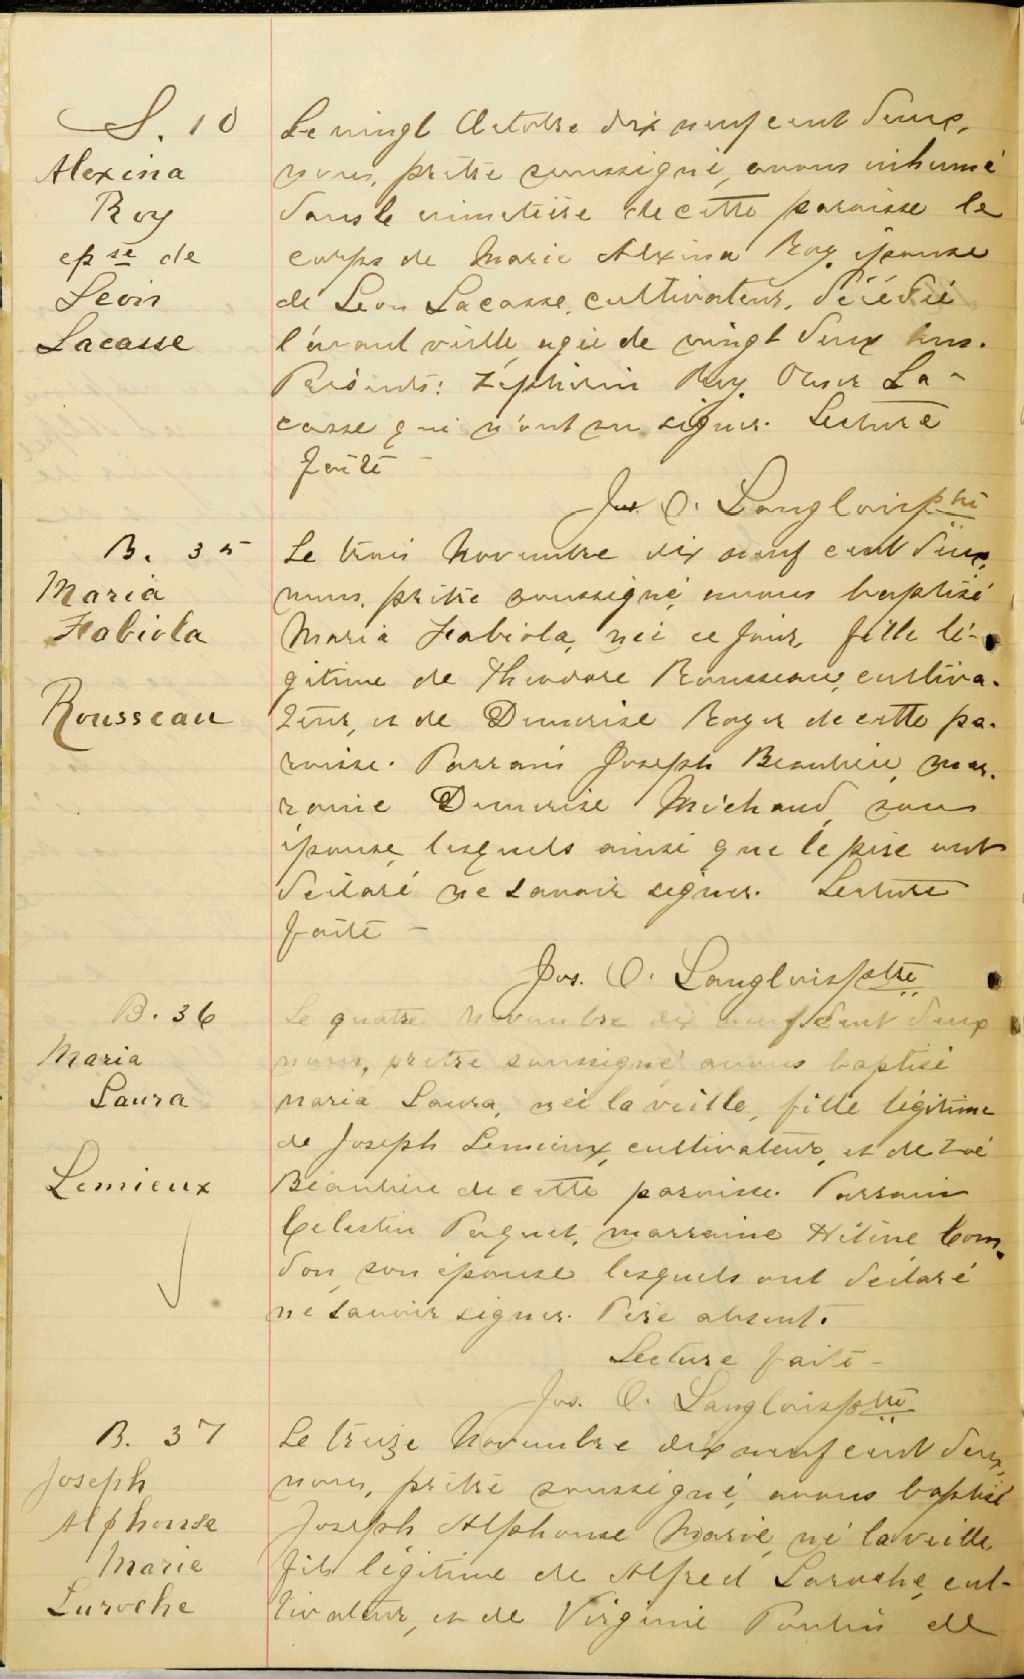 S. 10
Alexina
Roy
epse de
Léon
Lacasse
Le vingt Octobre dix neuf cent deux,
nous, prêtre soussigné, avons inhumé
dans le cimetière de cette paroisse le
corps de Marie Alexina Roy, épouse
de Léon Lacasse, cultivateur, décédée
l'avant veille, agée de vingt deux ans.
Présents: Zéphirin Roy, La-
casse qui n'ont su signer. Lecture
faite -
Jos. O. Langlois ptre
B. 35
Maria
Fabiola
Rousseau
Le trois Novembre dix neuf cent deux,
nous, prêtre soussigné, avons baptisé
Maria Fabiola, née ce jour, fille lé-
gitime de Théodore Rousseau, cultiva-
teur, et de Demerise Roger de cette pa-
roisse. Parrain Joseph Beaulieu, mar-
raine Demerise Michaud, son
épouse, lesquels ainsi que le père ont
déclaré ne savoir signer. Lecture
faite -
Jos. O. Langlois ptre
B. 36
Maria
Laura
Lemieux
Le quatre Novembre dix neuf cent deux
nous, prêtre soussigné avons baptisé
Maria Laura, née la veille, fille légitime
de Joseph Lemieux, cultivateur, et de Zoé
Beaulieu de cette paroisse. Parrain
Célestin Paquet, marraine Hélène Com-
don, son épouse lesquels ont déclaré
ne savoir signer. Père absent.
Lecture faite -
Jos. O. Langlois ptre
B. 37
Joseph
Alphonse
Marie
Laroche
Le treize Novembre dix neuf cent deux,
nous, prêtre soussigné, avons baptisé
Joseph Alphonse Marie, né la veille,
fils légitime de Alfred Laroche, cul-
tivateur, et de Virginie Poulin de